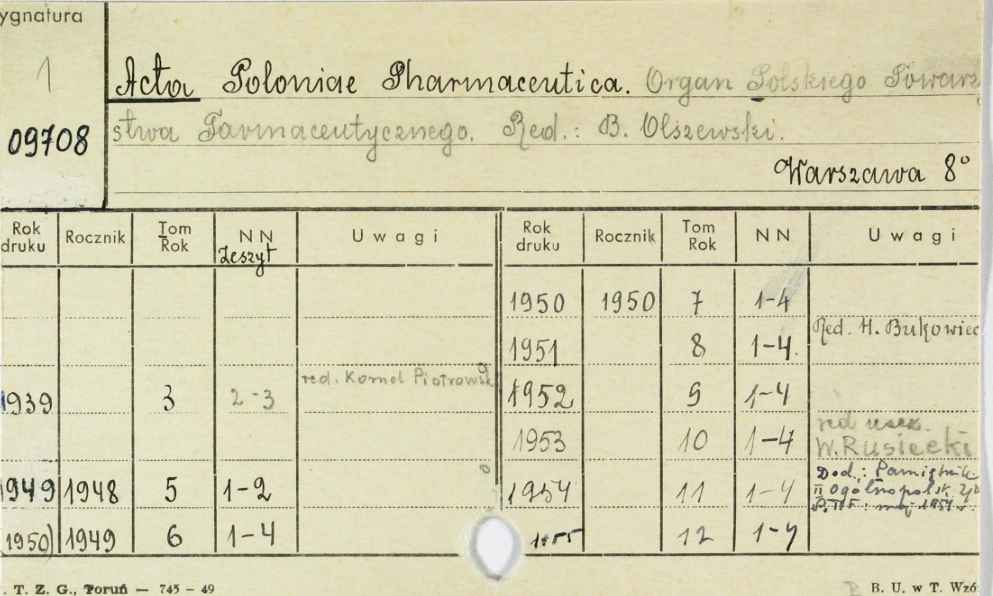 ygnatura
1
09708
Acta Poloniae Pharmaceutica. Organ Polskiego Towarz
stwa Farmaceutycznego. Red.: B. Olszewski.
Warszawa 8°
Rok druku Rocznik Tom Rok NN Zeszyt Uwagi Rok druku Rocznik Tom Rok NN Uwagi
1950 1950 7 1-4
1951 8 1-4. Red. H. Bukowiec
1939 3 2-3 red. Kornel Piotrowski 1952 9 1-4
1953 10 1-4 red W. Rusiecki
1949 1948 5 1-2 1954 11 1-4 Dod.: Pamiętnik
II Ogólnopolsk.
P.T.F. maj 1954 r.
1950) 1949 6 1-4 1955 12 1-4
. T. Z. G., Toruń — 745 - 49 B. U. w T. Wzó